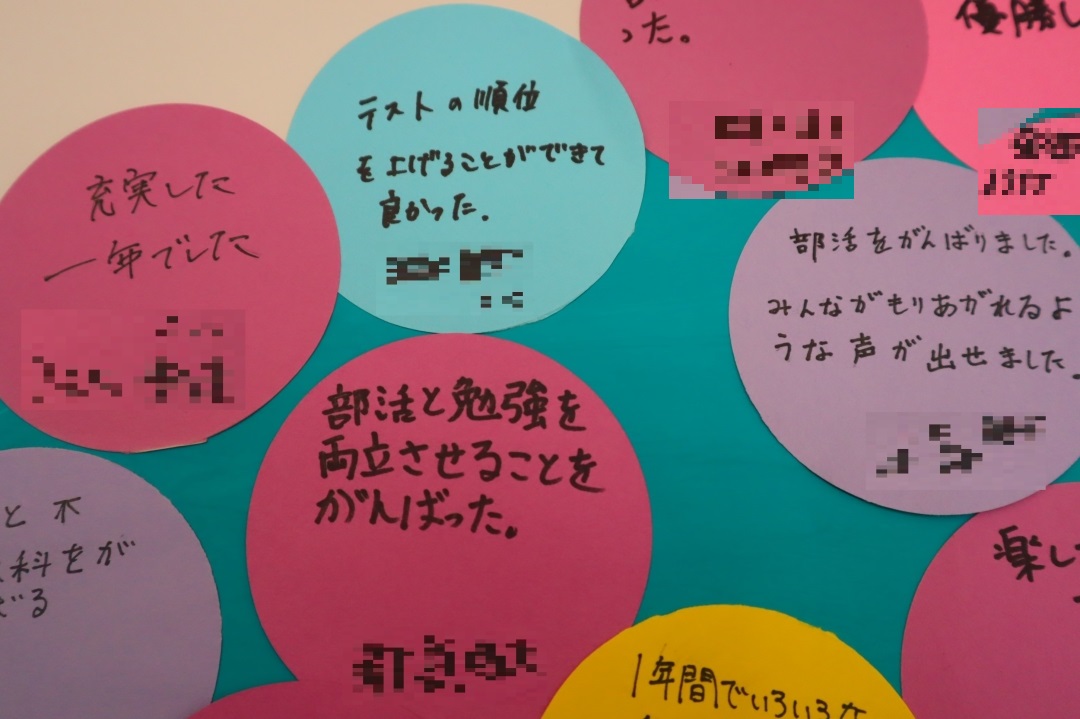 った。
優勝し
テストの順位
を上げることができて
良かった.
充実した
一年でした
部活をがんばりました。
みんながもりあがれるよ
うな声が出せました
部活と勉強を
両立させることを
がんばった。
と不
科をが
る
楽し
1年間でいろいろな